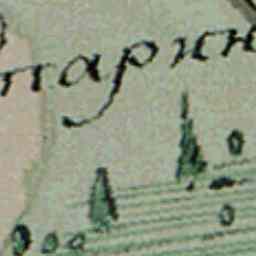 парин